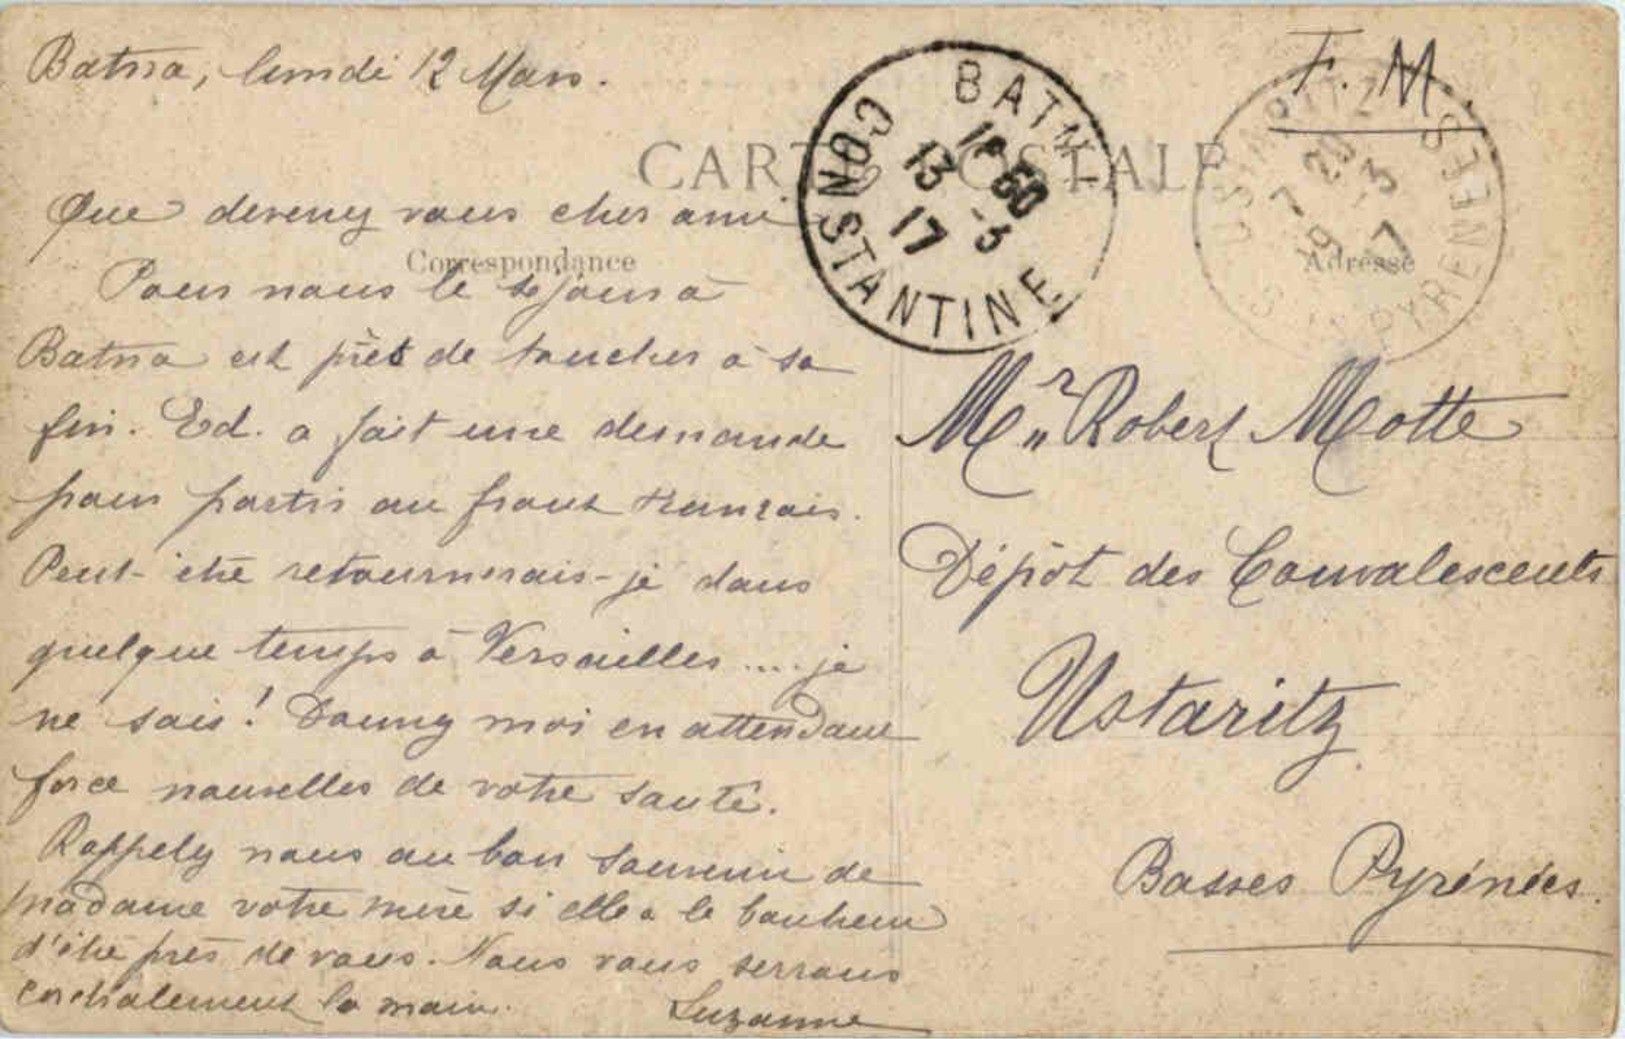 Batna, lundi 12 Mars.
F. M.
CARTE POSTALE
BATNA
18 50
13 -3
17
CONSTANTINE
USTARITZ
7 - 20
19 -3 17
PYRENEES
Que devenez vous cher ami
Correspondance
Adresse
Pour nous le séjour à
Batna est près de toucher à sa
fin. Ed. a fait une demande
pour partir au front français.
Peut-être retournerais-je dans
quelque temps à Versailles .... je
ne sais! Donnez moi en attendant
force nouvelles de votre santé.
Rappelez nous au bon souvenir de
madame votre mère si elle a le bonheur
d'être près de vous. Nous vous serrons
cordialement la main.
Suzanne
Mr Robert Motte
Dépôt des Convalescents
Ustaritz
Basses Pyrénées.